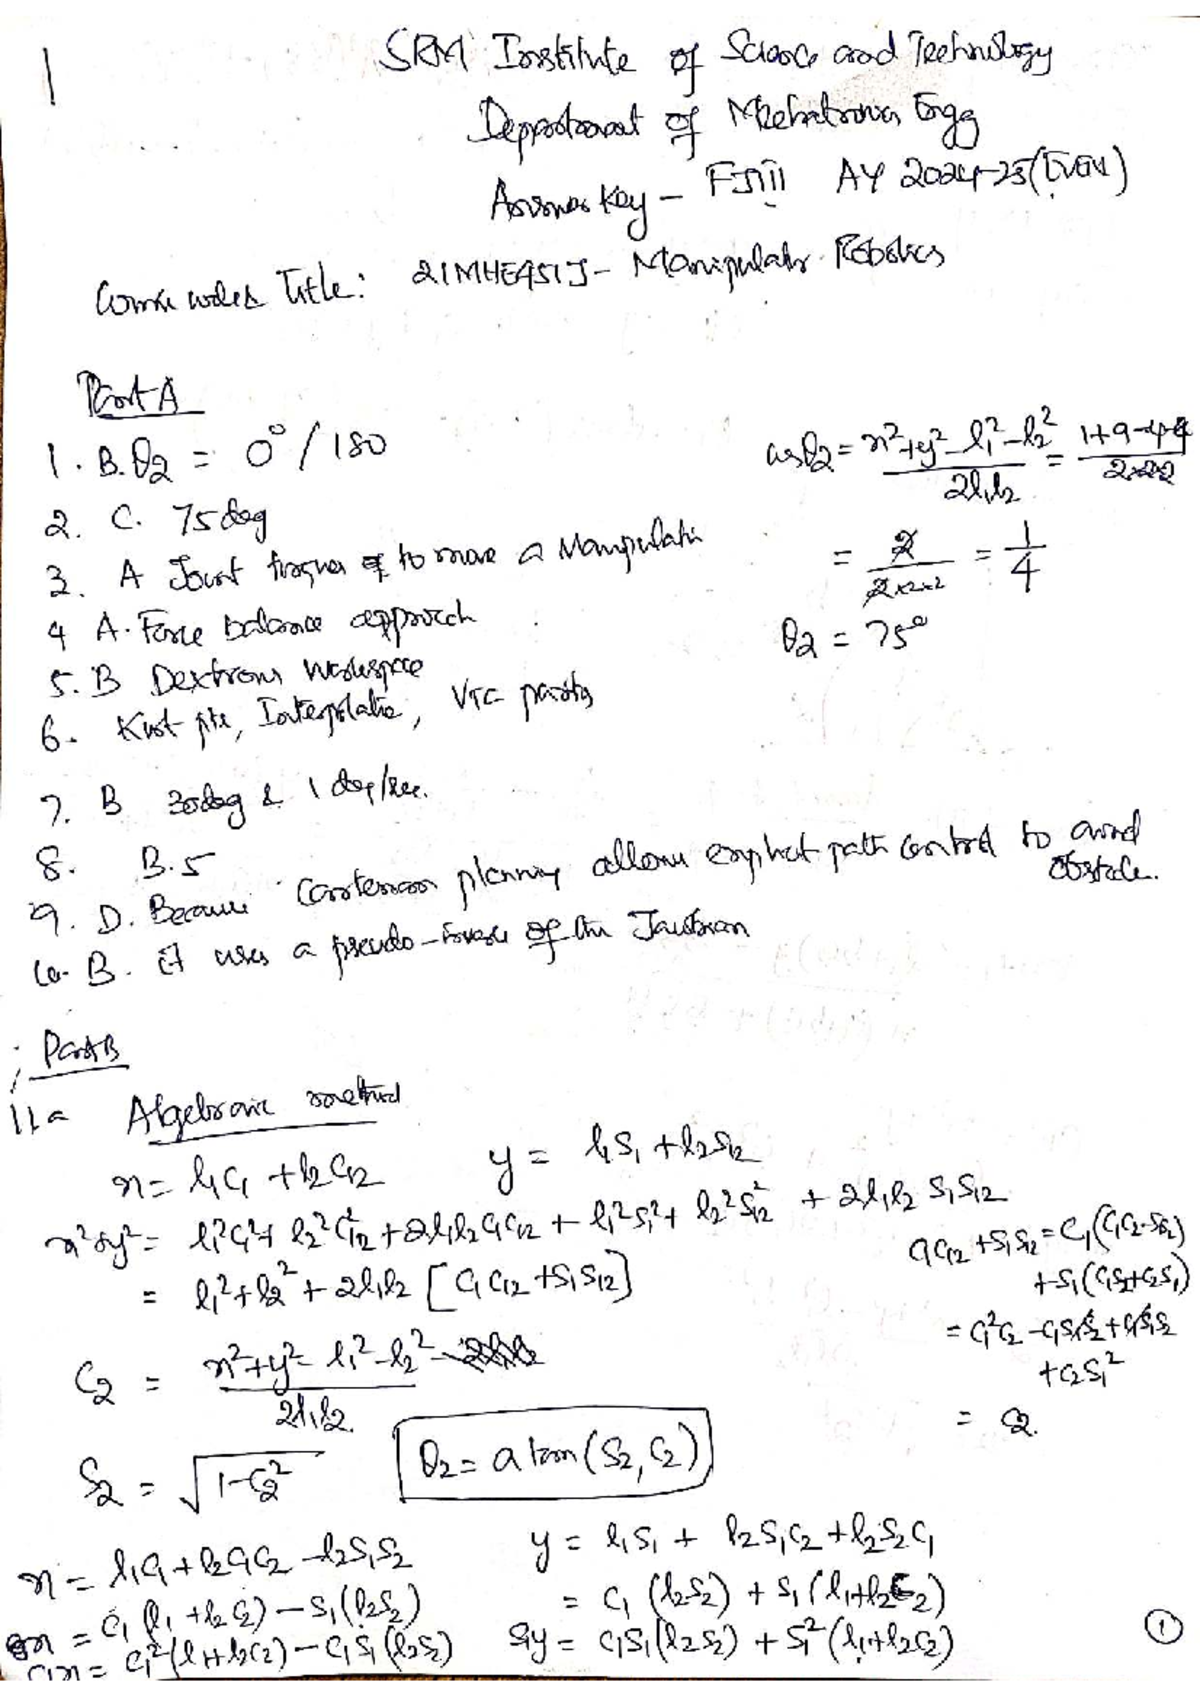 1
SRM Institute of Science and Technology
Department of Mechatronics Engg
Answer Key - FJ III AY 2024-25 (EVEN)
Course code & Title: 21MHE451J - Manipulator Robotics
Part A
1. B. θ2 = 0° / 180
cosθ2 = x²+y²-l1²-l2² / 2l1l2 = 1+9-4-4 / 2x2x2
2. C. 75 deg
= 2 / 2x2x2 = 1/4
3. A Joint torques to move a Manipulator
θ2 = 75°
4 A. Force balance approach
5. B Dextrous Workspace
6. Knot pts, Interpolatio, Via points
7. B 30deg & 1 deg/sec.
8. B. 5
9. D. Because Cartesian planning allows explicit path control to avoid obstacle.
10. B. it uses a pseudo-inverse of the Jacobian
Part B
11a Algebraic method
x = l1C1 + l2C12 y = l1S1 + l2S12
x²+y² = l1²C1² + l2²C12² + 2l1l2C1C12 + l1²S1² + l2²S12² + 2l1l2 S1S12
= l1² + l2² + 2l1l2 [C1C12 + S1S12]
C1C12 + S1S12 = C1(C1C2-S1S2)
+S1(C1S2+C2S1)
= C1²C2 - C1S1S2 + C1S1S2
+C2S1²
= C2.
C2 = x²+y²-l1²-l2² / 2l1l2.
S2 = √1-C2² θ2 = a tan(S2, C2)
x = l1C1 + l2C1C2 - l2S1S2 y = l1S1 + l2S1C2 + l2S2C1
x = C1(l1 + l2C2) - S1(l2S2) = C1(l2S2) + S1(l1+l2C2)
C1x = C1²(l1+l2C2) - C1S1(l2S2) S1y = C1S1(l2S2) + S1²(l1+l2C2)
1